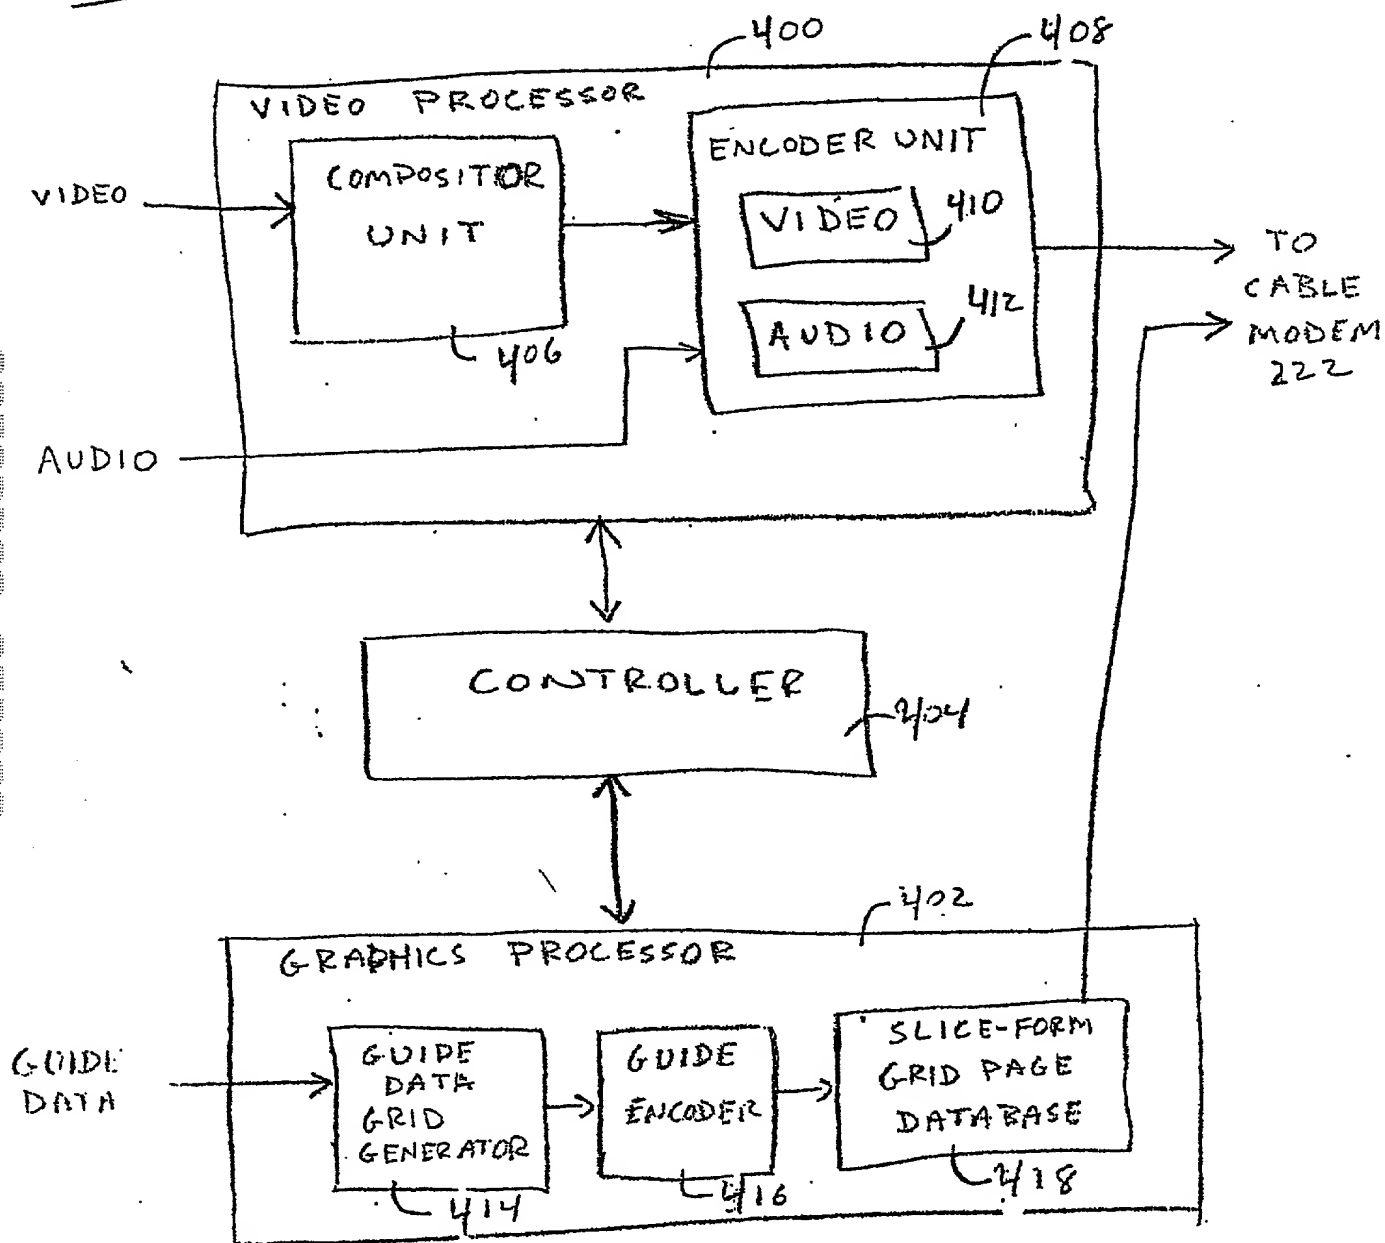 400
408
VIDEO PROCESSOR
ENCODER UNIT
COMPOSITOR
UNIT
VIDEO
VIDEO
410
TO
CABLE
MODEM
222
AUDIO
412
406
AUDIO
CONTROLLER
404
402
GRAPHICS PROCESSOR
GUIDE
DATA
GUIDE
DATA
GRID
GENERATOR
GUIDE
ENCODER
SLICE-FORM
GRID PAGE
DATABASE
414
416
418